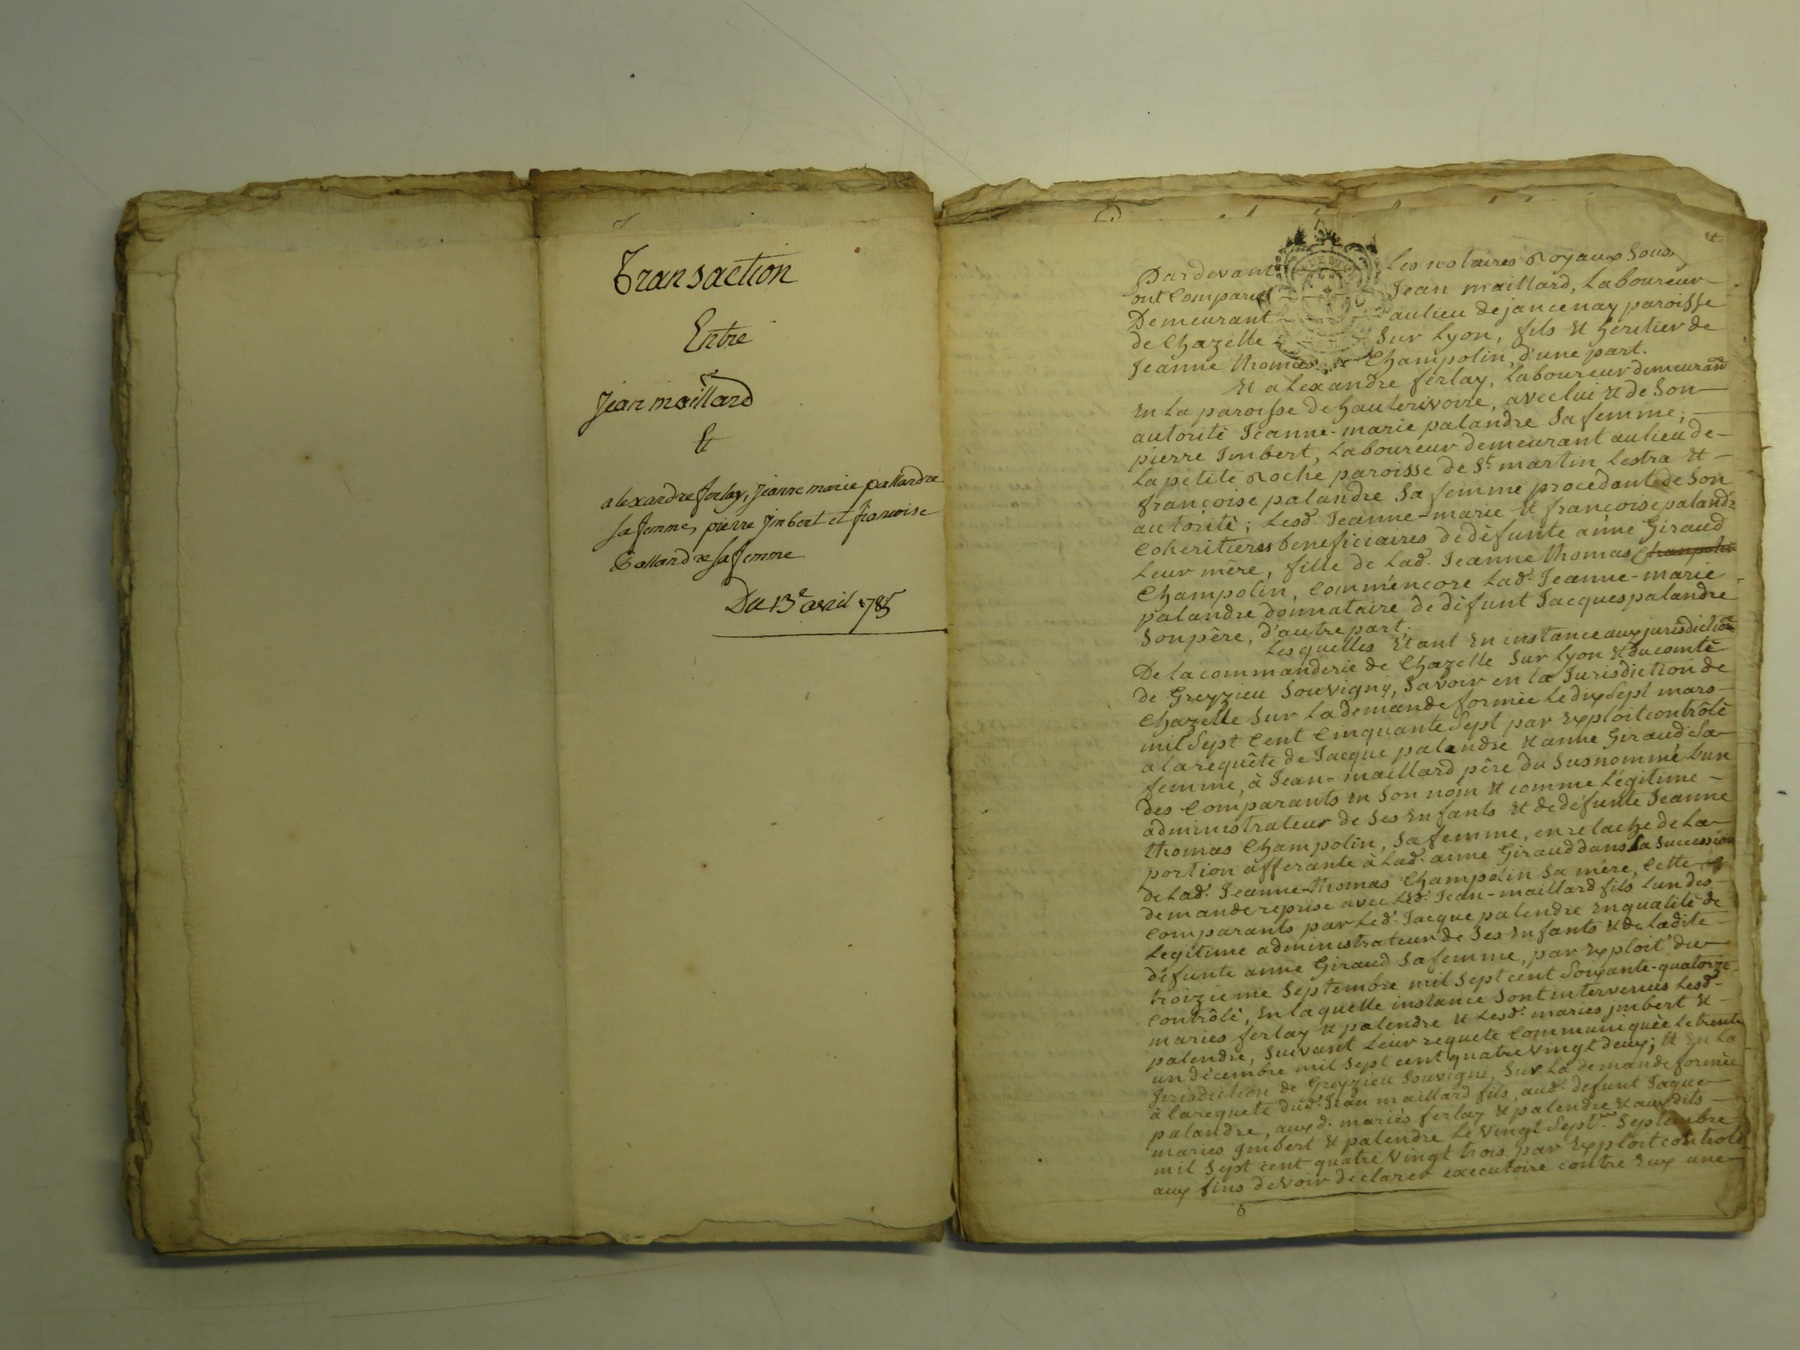 Transaction
Entre
Jean maillard
Et
alexandre ferlay, jeanne marie pallandre
sa femme, pierre jmbert et francoise
Pallandre sa femme
Du 13e avril 1785
Pardevant Les notaires Royaux Sous
ont Comparu Jean maillard, Laboureur
Demeurant au lieu de jancenay paroisse
de Chazelle Sur Lyon, fils et heritier de
Jeanne thomas Champolin, d'une part.
Et alexandre ferlay, Laboureur demeurand
En La paroisse de hauterivoire, avec lui et de Son
autorité Jeanne-marie palandre Sa femme;
pierre Imbert, Laboureur demeurant au lieu de
La petite Roche paroisse de St martin Lestra et
françoise palandre Sa femme procédant de Son
autorité; Lesd. Jeanne-marie et françoise palandre
Coheritieres beneficiaires de défunte anne Giraud
Leur mère, fille de Lad. Jeanne thomas Champolin
Champolin, Comm'encore Lad. Jeanne-marie
palandre donnataire de défunt Jacques palandre
Son père, d'autre part.
Lesquelles Étant En instance aux jurisdictions
De la commanderie de Chazelle Sur Lyon et du comté
de Greyzieu Souvigny, Savoir en la Jurisdiction de
Chazelle Sur La demande formée Le dix Sept mars
mil Sept Cent Cinquante Sept par Exploit contrôlé
a la requête de Jacque palendre et anne Giraud Sa
femme, à Jean maillard père du Susnommé L'un
des Comparants En Son nom et comme Légitime
administrateur de Ses Enfants et de défunte Jeanne
thomas Champolin, Sa femme, en relache de La
portion afférante à Lad. anne Giraud dans La Succession
de Lad. Jeanne-thomas Champolin Sa mère, Cette
demande reprise avec Led. Jean-maillard fils L'un des
Comparants par Led. Jacque palendre En qualité de
Légitime administrateur de Ses Enfants et de Ladite
défunte anne Giraud Sa femme, par Exploit du
troizieme Septembre mil Sept cent Soixante-quatorze
Contrôlé, En laquelle instance Sont intervenus Lesd.
mariés ferlay et palendre et Lesd. mariés jmbert et
palendre, Suivant Leur requete Communiquée Le trente
un décembre mil Sept cent quatre vingt deux; et En La
Jurisdiction de Greyzieu Souvigni, Sur La demande formée
à la requete dud. Jean maillard fils, aud. défunt Jaque
palandre, auxd. mariés ferlay et palendre et aux dits
mariés Imbert et palendre Le vingt Sept Septembre
mil Sept cent quatre vingt trois par Exploit controlé
aux fins de voir déclarer executoire contre Eux une